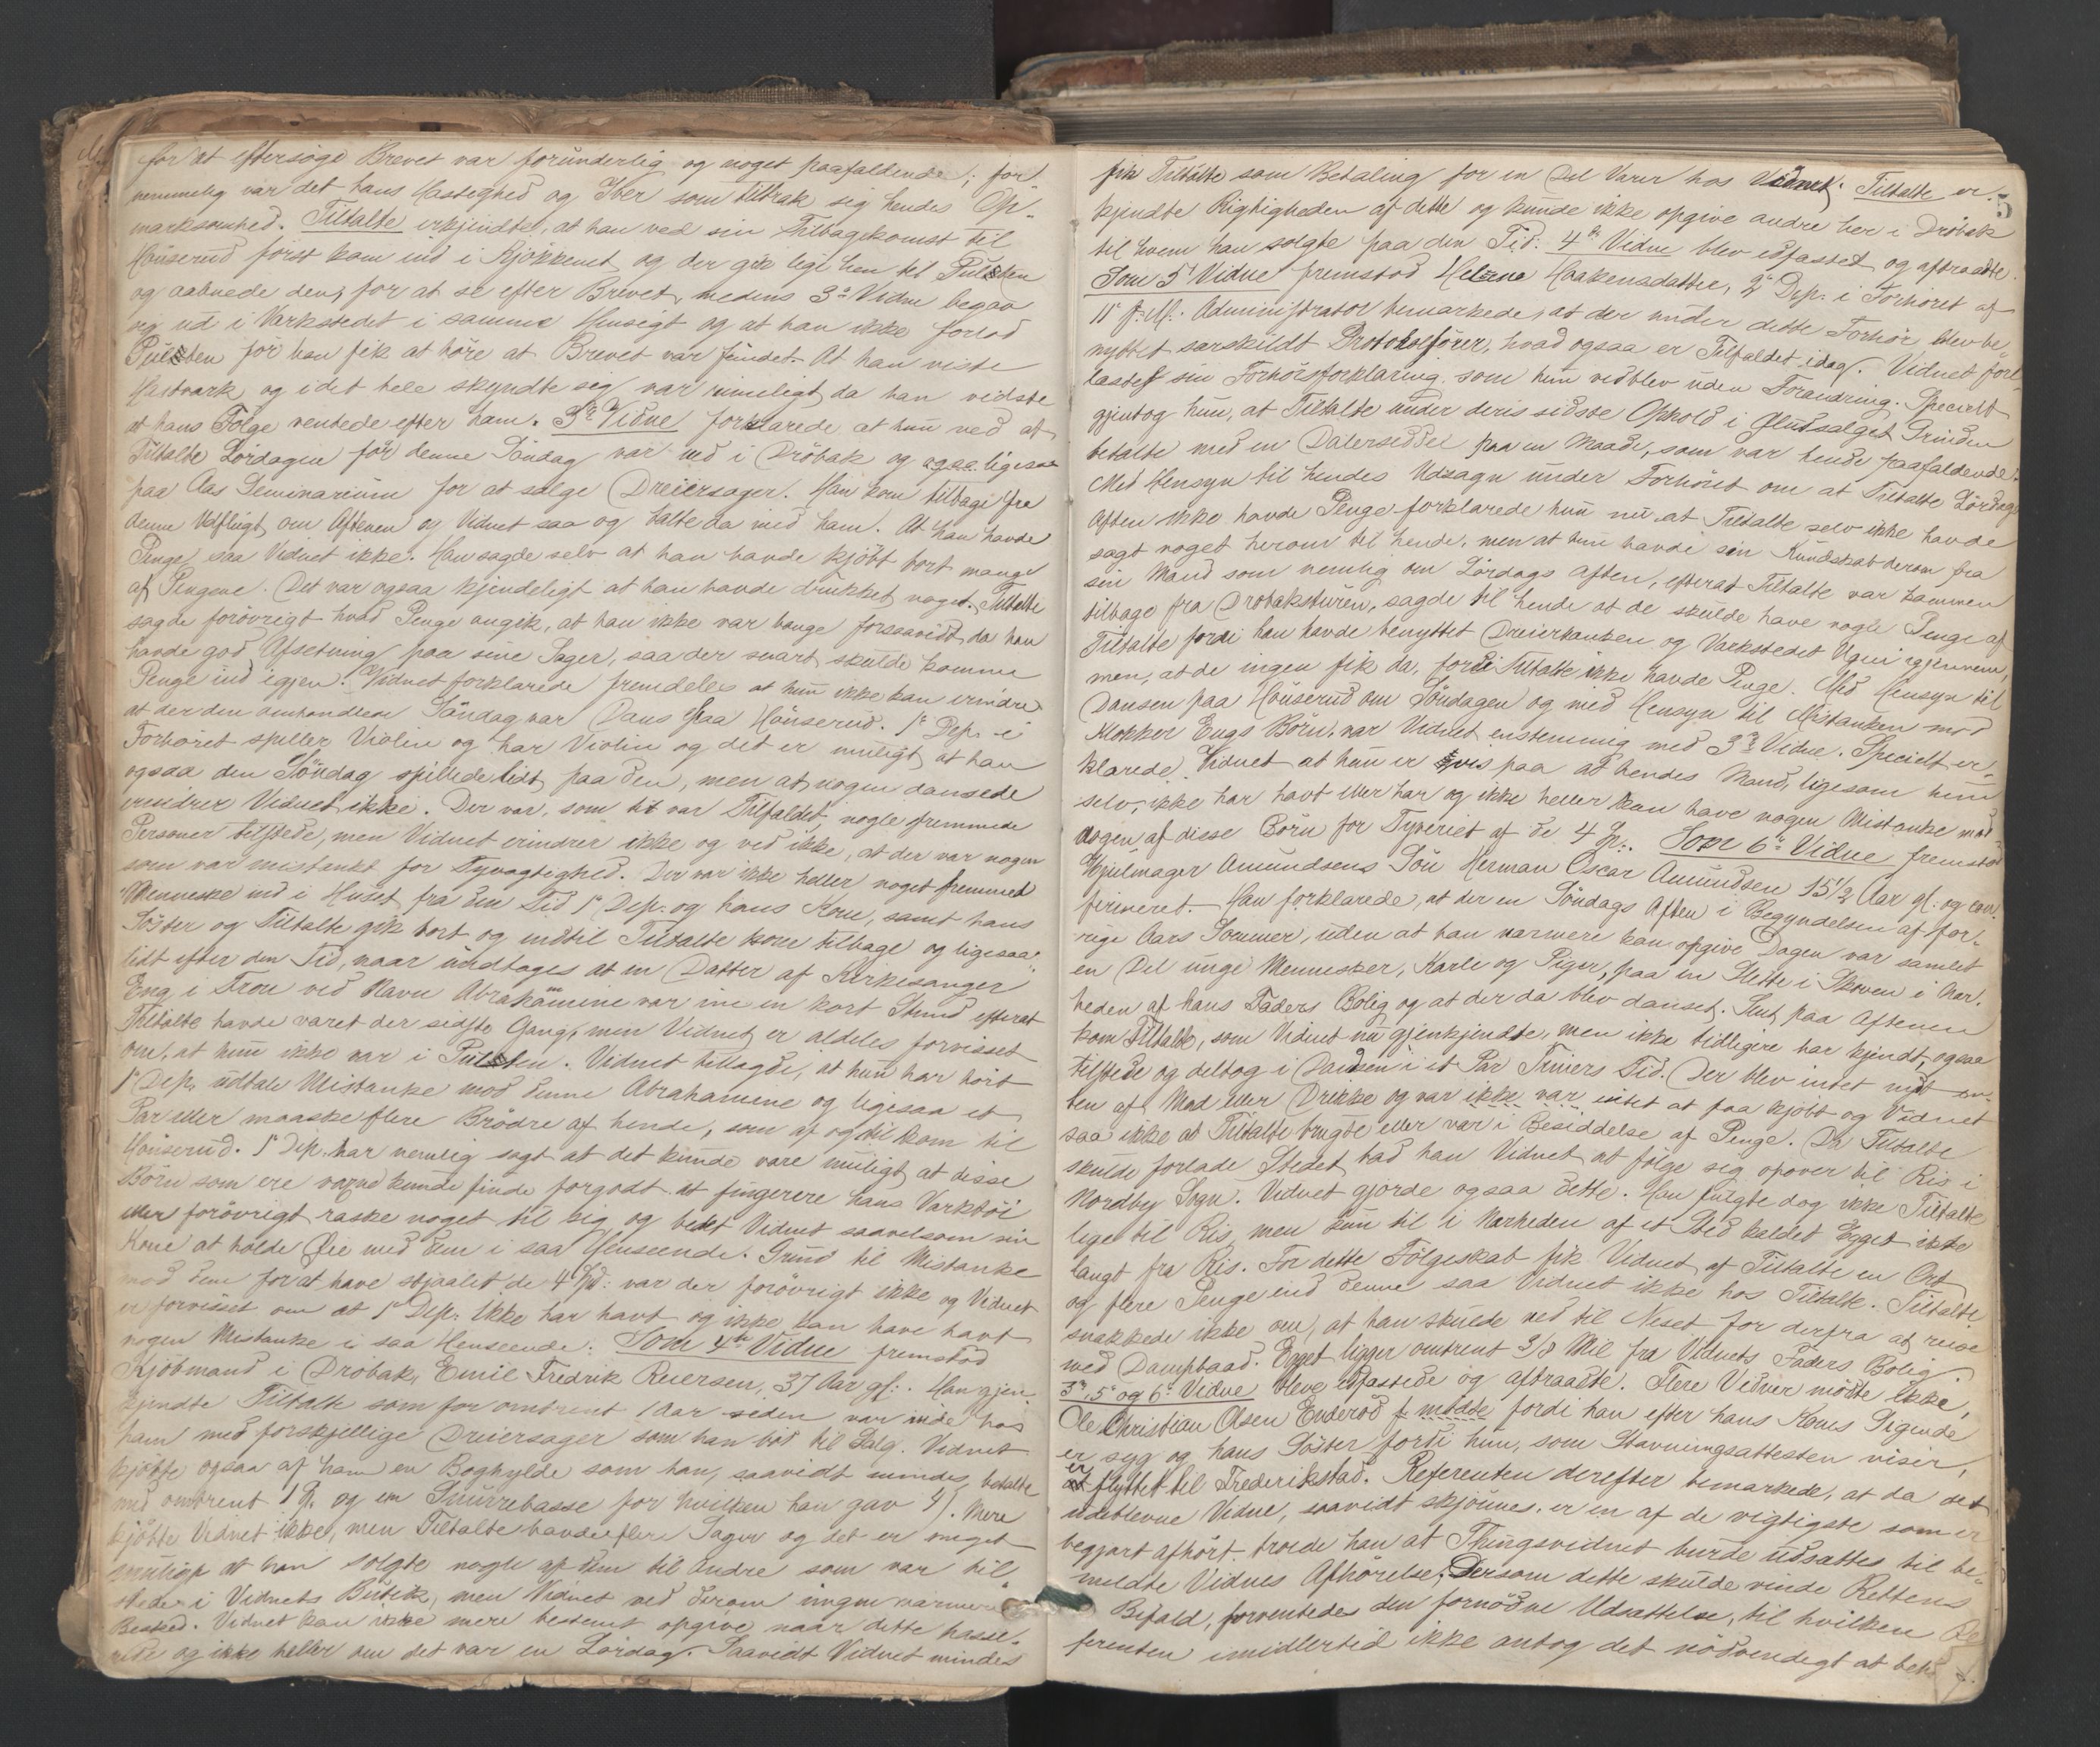 for at eftersøge Brevet var forunderlig og noget paafaldende; for
nemmelig var det hans Hastighed og Iver som tiltrak sig hendes Op-
mærksomhed. Tiltalte erkjendte, at han ved sin Tilbagekomst til
Hönserud først kom ind i Kjøkkenet og der gik lige hen til Pulten
og aabnede den, for at se efter Brevet, medens 3die Vidne begav
sig ud i Værkstedet i samme Hensigt og at han ikke forlod
Pulten för han fik at höre at Brevet var fundet. At han viste
Hastværk og i det hele skyndte sig var rimeligt, da han vidste
at hans Følge ventede efter ham. 3die Vidne forklarede at hun ved at
Tiltalte Lördagen för denne Söndag var ned i Dröbak og ogsaa ligesaa
paa Aas Seminarium for at sælge Dreiersager. Han kom tilbage fra
denne Udflugt om Aftenen og Vidnet saa og talte da med ham. At han havde
Penge saa Vidnet ikke. Han sagde selv at han havde kjöbt bort mange
af Pengene. Det var ogsaa kjendeligt at han havde drukket noget. Tiltalte
sagde forövrigt hvad Penge angik, at han ikke var bange forsaavidt, da han
havde god Afsetning paa sine Sager, saa der snart skulde komme
Penge ind igjen. Vidnet forklarede fremdeles at hun ikke kan erindre
at der den omhandlede Söndag var Dans paa Hönserud. 1ste Dep. i
Forhöret spiller Violin og har Violin og det er muligt, at han
ogsaa den Söndag spillede lidt paa den, men at nogen dansede
erindrer Vidnet ikke. Der var, som tit var Tilfaldet, nogle fremmede
Personer tilstede, men Vidnet erindrer ikke og ved ikke, at der var nogen
som var mistænkt for Tyvagtighed. Der var ikke heller noget fremmed
Menneske ind i Huset fra den Tid 1ste Dep. og hans Kone, samt hans
Söster og Tiltalte gik bort og indtil Tiltalte kom tilbage og ligesaa
lidt efter den Tid, naar undtages at en Datter af Kirkesanger
Eng i Fron ved Navn Abrahamine var inde en kort Stund efterat
Tiltalte havde været der sidste Gang, men Vidnet er aldeles forvisset
om, at hun ikke var i Pulten. Vidnet tillagde, at hun har hört
1ste Dep. udtale Mistanke mod denne Abrahamine og ligesaa et
Par eller maaske flere Brödre af hende, som af og til kom til
Hönserud. 1ste Dep. har nemlig sagt at det kunde være muligt, at disse
Börn som ere vante kunde finde forgodt at fingerere hans Værktöi
eller forövrigt raske noget til sig og bedt Vidnet saavelsom sin
Kone at holde Öie med dem i saa Henseende. Grund til Mistanke
mod dem for at have stjaalet de 4 Spd. var der forövrigt ikke og Vidnet
er forvisset om at 1ste Dep. ikke har havt og ikke kan have havt
nogen Mistanke i saa Henseende. Som 4de Vidne fremstod
Kjöbmand i Dröbak, Emil Fredrik Reiersen, 37 Aar gl. Han gjen-
kjendte Tiltalte som for omtrent 1 Aar siden var inde hos
ham med forskjellige Dreiersager som han böd til Salg. Vidnet
kjöbte ogsaa af ham en Boghylde som han, saavidt mindes, betalte
med omtrent 1 Sp. og en Snurrebasse for hvilken han gav 4 s. Mere
kjöbte Vidnet ikke, men Tiltalte havde flere Sager og det er meget
muligt at han solgte nogle af dem til Andre som var til-
stede i Vidnets Butik, men Vidnet ved derom ingen nærmere
Besked. Vidnet kan ikke mere bestemt opgive, naar dette passe-
rede og ikke heller om det var en Lördag. Saavidt Vidnet mindes
5
fik Tiltalte som Betaling for en Del Varer hos Vidnet. Tiltalte er-
kjendte Rigtigheden af dette og kunde ikke opgive andre her i Dröbak
til hvem han solgte paa den Tid. 4de Vidne blev edfæstet og aftraadte.
Som 5te Vidne fremstod Helene Haakensdatter, 2den Dep. i Forhöret af
11te f. M. Administrator bemærkede, at der under dette Forhör blev be-
nyttet særskildt Protokolförer, hvad ogsaa er Tilfaldet idag. Vidnet fore-
læstes sin Forhörsforklaring som hun vedblev uden Forandring. Specielt
gjentog hun, at Tiltalte under deres sidste Ophold i Øludsalget Grinden
betalte med en Dalerseddel paa en Maade, som var hende paafaldende.
Med Hensyn til hendes Udsagn under Forhöret om at Tiltalte Lördags
Aften ikke havde Penge forklarede hun nu, at Tiltalte selv ikke havde
sagt noget herom til hende, men at hun havde sin Kundskab derom fra
sin Mand som nemlig om Lördags Aften, efterat Tiltalte var kommen
tilbage fra Dröbaksturen, sagde til hende at de skulde have nogle Penge af
Tiltalte fordi han havde benyttet Dreierbænken og Værkstedet Ugen igjennem,
men, at de ingen fik da, fordi Tiltalte ikke havde Penge. Med Hensyn til
Dansen paa Hönserud om Söndagen og med Hensyn til Mistanken mod
Klokker Engs Börn, var Vidnet enstemmig med 3die Vidne. Specielt er-
klarede Vidnet at hun er vis paa at hendes Mand, ligesom hun
selv, ikke har havt eller har og ikke heller kan have nogen Mistanke mod
nogen af disse Börn for Tyveriet af de 4 Sp. Som 6te Vidne fremstod
Hjulmager Amundsens Sön Herman Oscar Amundsen 15 1/2 Aar gl. og con-
firmeret. Han forklarede, at der en Söndags Aften i Begyndelsen af for-
rige Aars Sommer, uden at han nærmere kan opgive Dagen var samlet
en Del unge Mennesker, Karle og Piger, paa en Slette i Skoven i Nær-
heden af hans Faders Bolig og at der da blev danset. Sent paa Aftenen
kom Tiltalte, som Vidnet nu gjenkjendte, men ikke tidligere har kjendt, ogsaa
tilstede og deltog i Dansen i et Par Timers Tid. Der blev intet nydt en-
ten af Mad eller Drikke og var ikke var intet at faa kjöbt og Vidnet
saa ikke at Tiltalte brugte eller var i Besiddelse af Penge. Da Tiltalte
skulde forlade Stedet bad han Vidnet at fölge sig opover til Ris i
Nordby Sogn. Vidnet gjorde ogsaa dette. Han fulgte dog ikke Tiltalte
lige til Ris, men kun til i Nærheden af et Sted kaldet Egget ikke
langt fra Ris. For dette Fölgeskab fik Vidnet af Tiltalte en Ort
og flere Penge end denne saa Vidnet ikke hos Tiltalte. Tiltalte
snakkede ikke om, at han skulde ned til Neset for derfra at reise
med Dampbaad. Egget ligger omtrent 3/8 Mil fra Vidnets Faders Bolig.
3die, 5te og 6te Vidne bleve edfæstede og aftraadte. Flere Vidner mödte ikke,
Ole Christian Olsen Enderöd f. mödte fordi han efter hans Kones Sigende
er syg og hans Söster fordi hun, som Stævningsattesten viser,
er flyttet til Frederikstad. Referenten derefter bemærkede, at da det
udeblevne Vidne, saavidt skjönnes, er en af de vigtigste som er
begjært afhört, troede han at Thingsvidnet burde udsættes til be-
meldte Vidnes Afhörelse. Dersom dette skulde vinde Rettens
Bifald, forventedes den fornödne Udsættelse, til hvilken Re-
ferenten imidlertid ikke antog det nödvendigt at